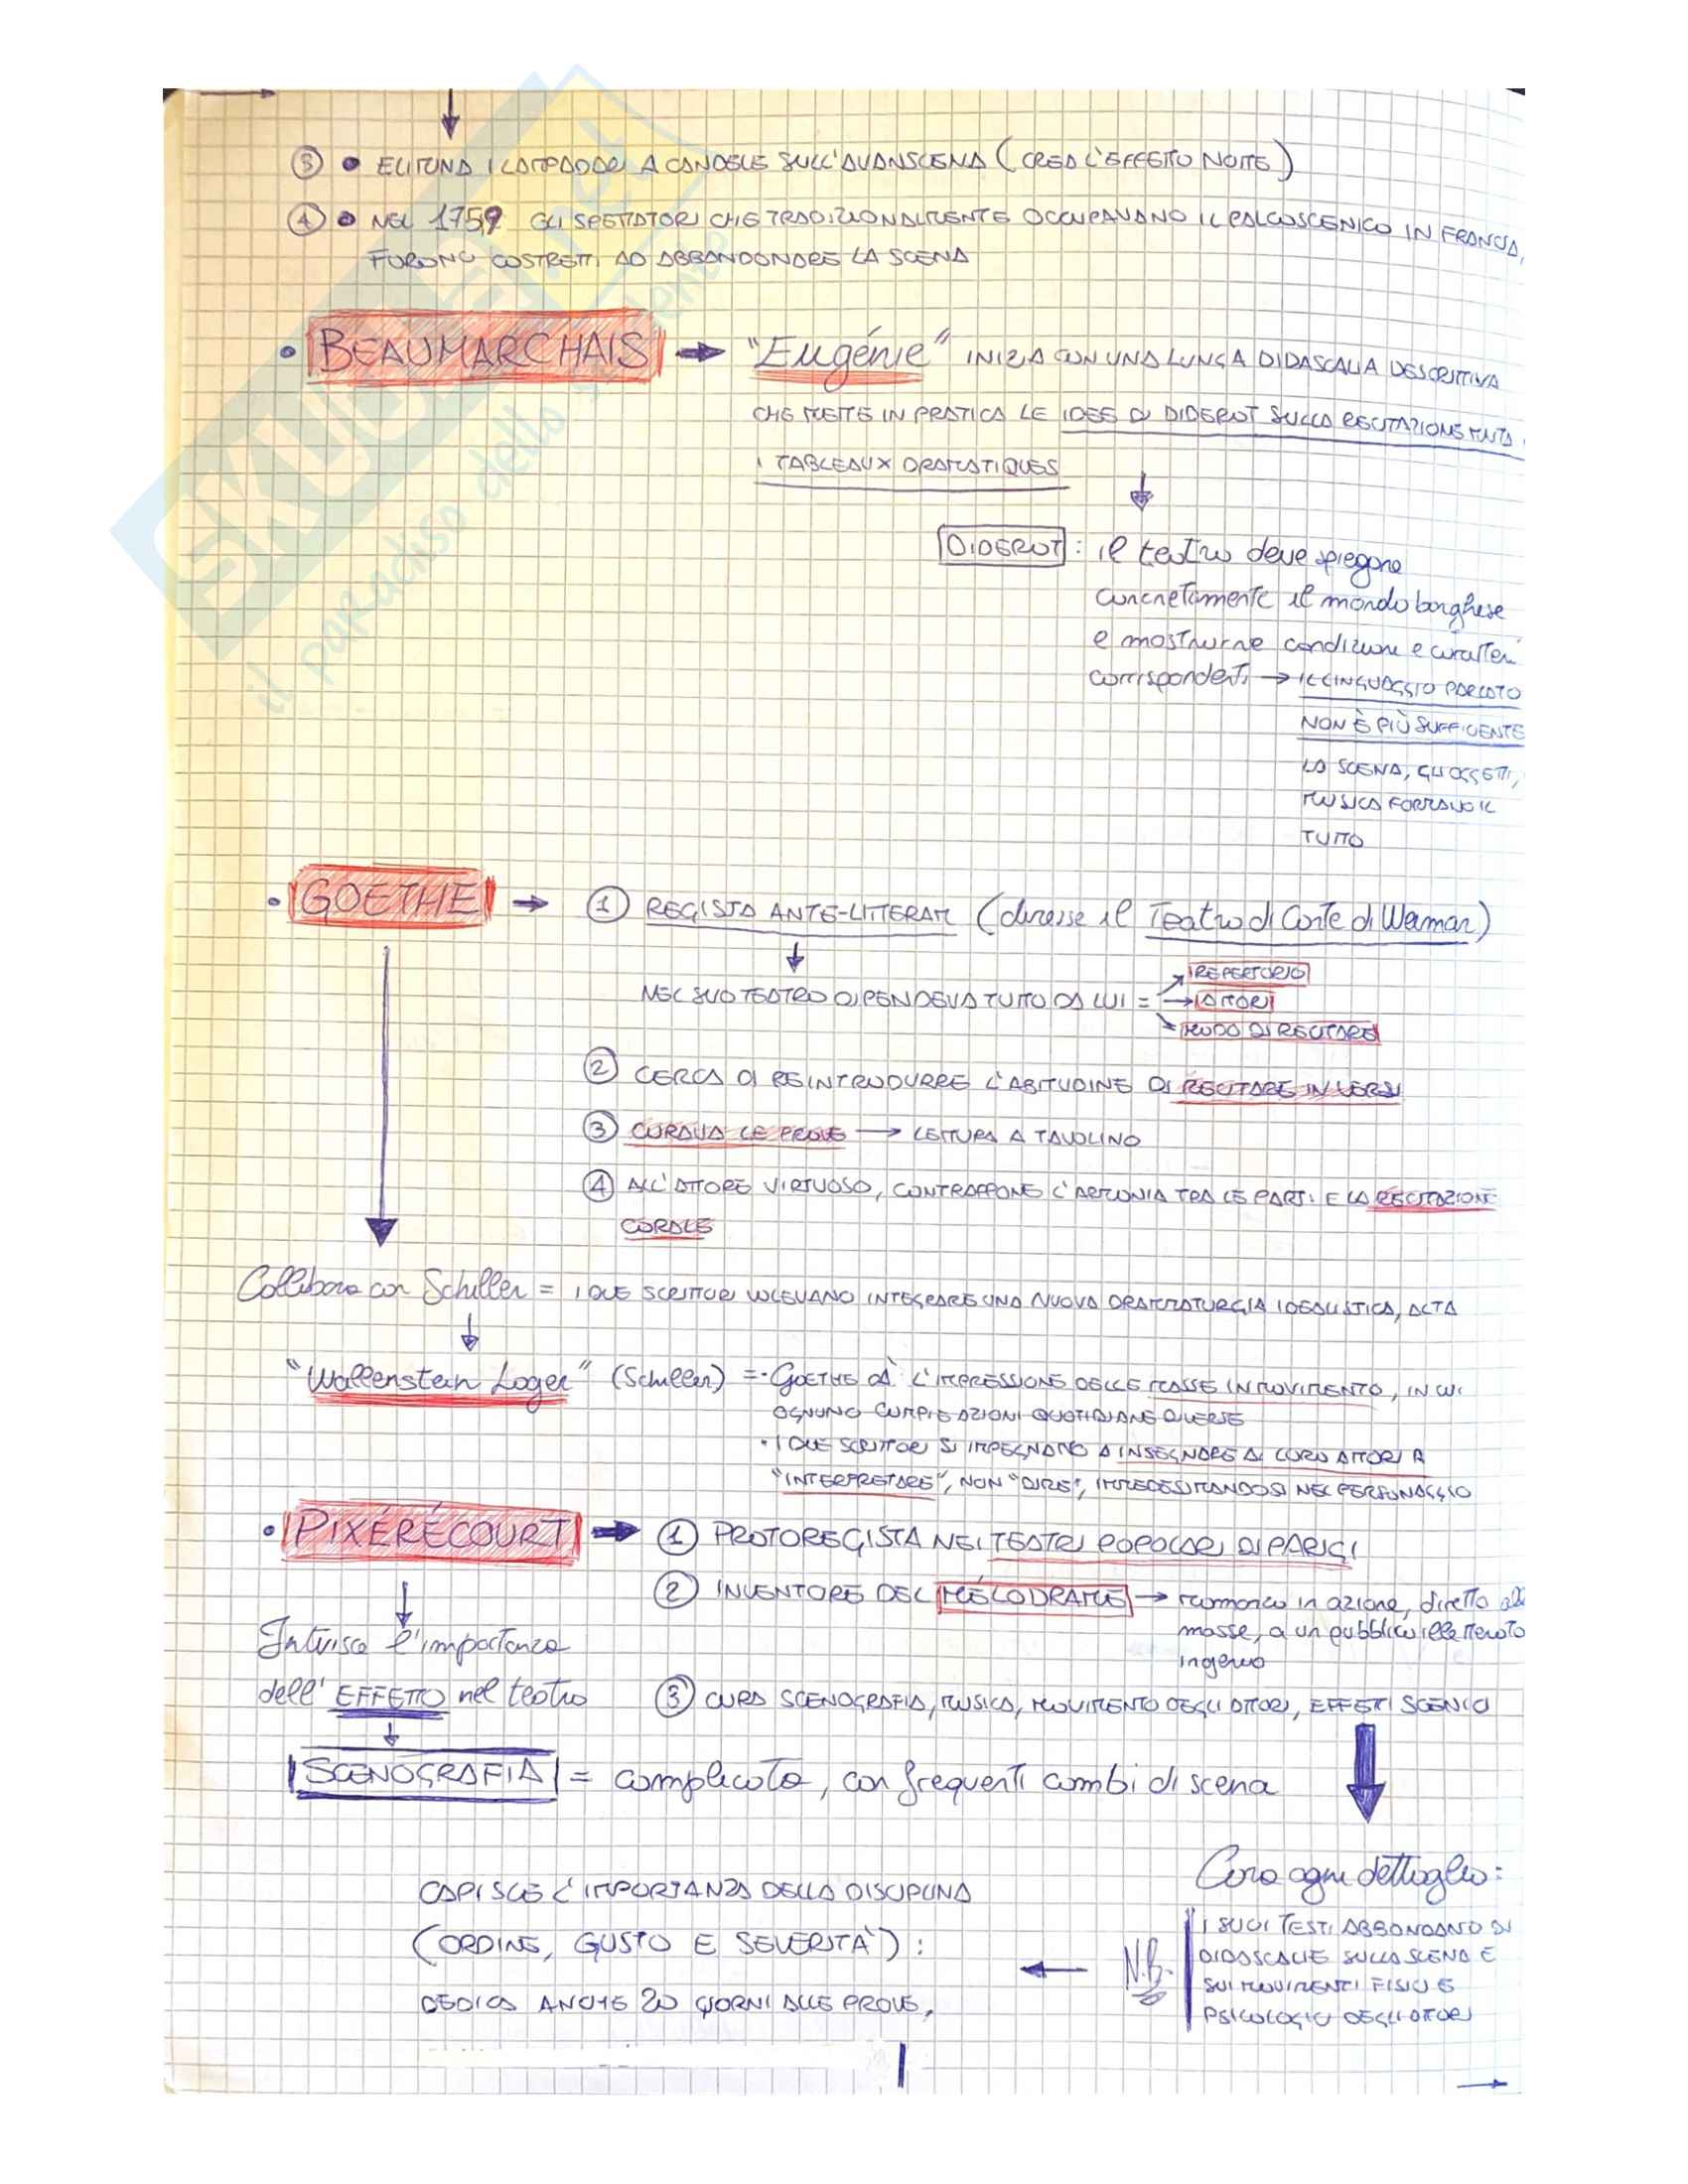 ③ • ELIMINA I LAMPADARI A CANDELE SULL'AVANSCENA (CREA L'EFFETTO NOTTE)
④ • NEL 1759 GLI SPETTATORI CHE TRADIZIONALMENTE OCCUPAVANO IL PALCOSCENICO IN FRANCIA,
FURONO COSTRETTI AD ABBANDONARE LA SCENA
• BEAUMARCHAIS → "Eugénie" INIZIA CON UNA LUNGA DIDASCALIA DESCRITTIVA
CHE METTE IN PRATICA LE IDEE DI DIDEROT SULLA RECITAZIONE MUTA
I TABLEAUX DRAMATIQUES
DIDEROT: il teatro deve spiegare
concretamente il mondo borghese
e mostrarne condizioni e caratteri
corrispondenti → IL LINGUAGGIO PARLATO
NON È PIÙ SUFFICIENTE
LA SCENA, GLI OGGETTI,
MUSICA FORMANO IL
TUTTO
• GOETHE → ① REGISTA ANTE-LITTERAM (diresse il Teatro di Corte di Weimar)
NEL SUO TEATRO DIPENDEVA TUTTO DA LUI = → REPERTORIO
→ ATTORI
→ MODO DI RECITARE
② CERCA DI REINTRODURRE L'ABITUDINE DI RECITARE IN VERSI
③ CURAVA LE PROVE → LETTURA A TAVOLINO
④ ALL'ATTORE VIRTUOSO, CONTRAPPONE L'ARMONIA TRA LE PARTI E LA RECITAZIONE
CORALE
Collabora con Schiller = I DUE SCRITTORI VOLEVANO INTEGRARE UNA NUOVA DRAMMATURGIA IDEALISTICA, ALTA
"Wallenstein Lager" (Schiller) = • GOETHE DÀ L'IMPRESSIONE DELLE MASSE IN MOVIMENTO, IN CUI
OGNUNO COMPIE AZIONI QUOTIDIANE DIVERSE
• I DUE SCRITTORI SI IMPEGNANO A INSEGNARE AI LORO ATTORI A
"INTERPRETARE", NON "DIRE", IMMEDESIMANDOSI NEL PERSONAGGIO
• PIXÉRÉCOURT → ① PROTOREGISTA NEI TEATRI POPOLARI DI PARIGI
② INVENTORE DEL MÉLODRAME → in azione, diretto alle
masse, a un pubblico illetterato
ingenuo
Intuisce l'importanza
dell'EFFETTO nel teatro
③ CURA SCENOGRAFIA, MUSICA, MOVIMENTO DEGLI ATTORI, EFFETTI SCENICI
SCENOGRAFIA = complicata, con frequenti cambi di scena
Cura ogni dettaglio:
I SUOI TESTI ABBONDANO DI
DIDASCALIE SULLA SCENA E
SUI MOVIMENTI FISICI E
PSICOLOGICI DEGLI ATTORI
N.B.
CAPISCE L'IMPORTANZA DELLA DISCIPLINA
(ORDINE, GUSTO E SEVERITÀ):
DEDICA ANCHE 20 GIORNI ALLE PROVE,
SKUOLA.net
il paradiso dello studente